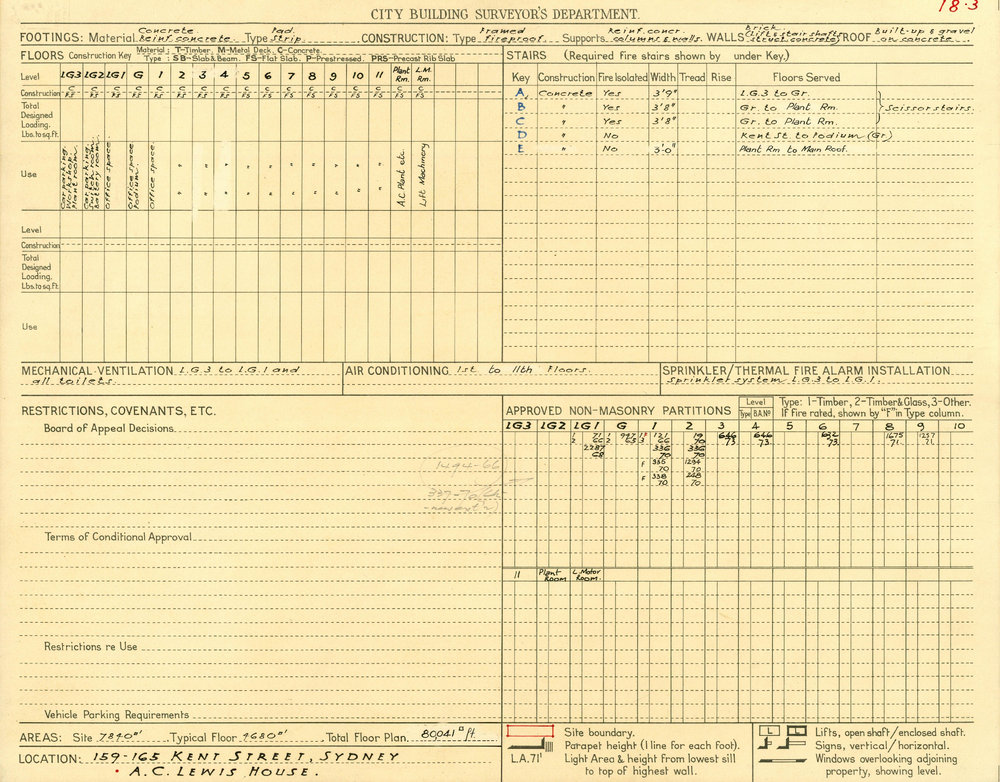 18.3
CITY BUILDING SURVEYOR'S DEPARTMENT.
FOOTINGS: Material Concrete Reinf. concrete. Type Pad. Strip. CONSTRUCTION: Type Framed Fireproof. Supports Reinf. concr. columns & walls. WALLS Brick (lift & stair shafts struct. concrete) ROOF Built-up & gravel on concrete.
FLOORS Construction Key Material: T-Timber, M-Metal Deck, C-Concrete.
Type: SB-Slab & Beam. FS-Flat Slab. P-Prestressed. PRS-Precast Rib Slab
Level LG3 LG2 LG1 G 1 2 3 4 5 6 7 8 9 10 11 Plant Rm. L.M. Rm.
Construction C C C C C C C C C C C C C C C C C
FS FS FS FS FS FS FS FS FS FS FS FS FS FS FS FS FS
Total Designed Loading. Lbs. to sq. ft.
Use
Car parking. Workshop. Plant room.
Car parking. Switch room. Battery room.
Office space.
Office space Podium.
Office space.
" " " " " " " " " "
" " " " " " " " " "
A.C. Plant etc.
Lift Machinery
Level
Construction
Total Designed Loading. Lbs. to sq. ft.
Use
STAIRS (Required Fire stairs shown by under Key.)
Key Construction Fire Isolated Width Tread Rise Floors Served
A, Concrete Yes 3'9" L.G.3 to Gr.
B " Yes 3'8" Gr. to Plant Rm. Scissor stairs.
C " Yes 3'8" Gr. to Plant Rm.
D " No Kent St. to Podium (Gr)
E " No 3'-0" Plant Rm to Main Roof.
MECHANICAL VENTILATION L.G.3 to L.G.1 and
all toilets.
AIR CONDITIONING 1st to 11th Floors.
SPRINKLER/THERMAL FIRE ALARM INSTALLATION
Sprinkler system L.G.3 to L.G.1.
RESTRICTIONS, COVENANTS, ETC.
Board of Appeal Decisions
1494-66)
Terms of Conditional Approval
Restrictions re Use
Vehicle Parking Requirements
APPROVED NON-MASONRY PARTITIONS Level Type B.A.Nº Type: 1-Timber, 2-Timber & Glass, 3-Other.
If fire rated, shown by "F" in Type column.
LG3 LG2 LG1 G 1 2 3 4 5 6 7 8 9 10
71 1 947 121 19 646 646 632 1675 1237
2 66 2 65 3 66 70 73 73 73 71. 71.
2287 336 336
68 70 70
F 335 1234
70 70
F 338 248
70 70
11 Plant Room L. Motor Room.
AREAS: Site 7840▫" Typical Floor 4680▫" Total Floor Plan. 80,041 ▫ft
LOCATION: 159-165 KENT STREET, SYDNEY
• A.C. LEWIS HOUSE.
Site boundary.
Parapet height (1 line for each foot).
L.A.71' Light Area & height from lowest sill
to top of highest wall.
L Lifts, open shaft/enclosed shaft.
Signs, vertical/horizontal.
Windows overlooking adjoining
property, showing level.